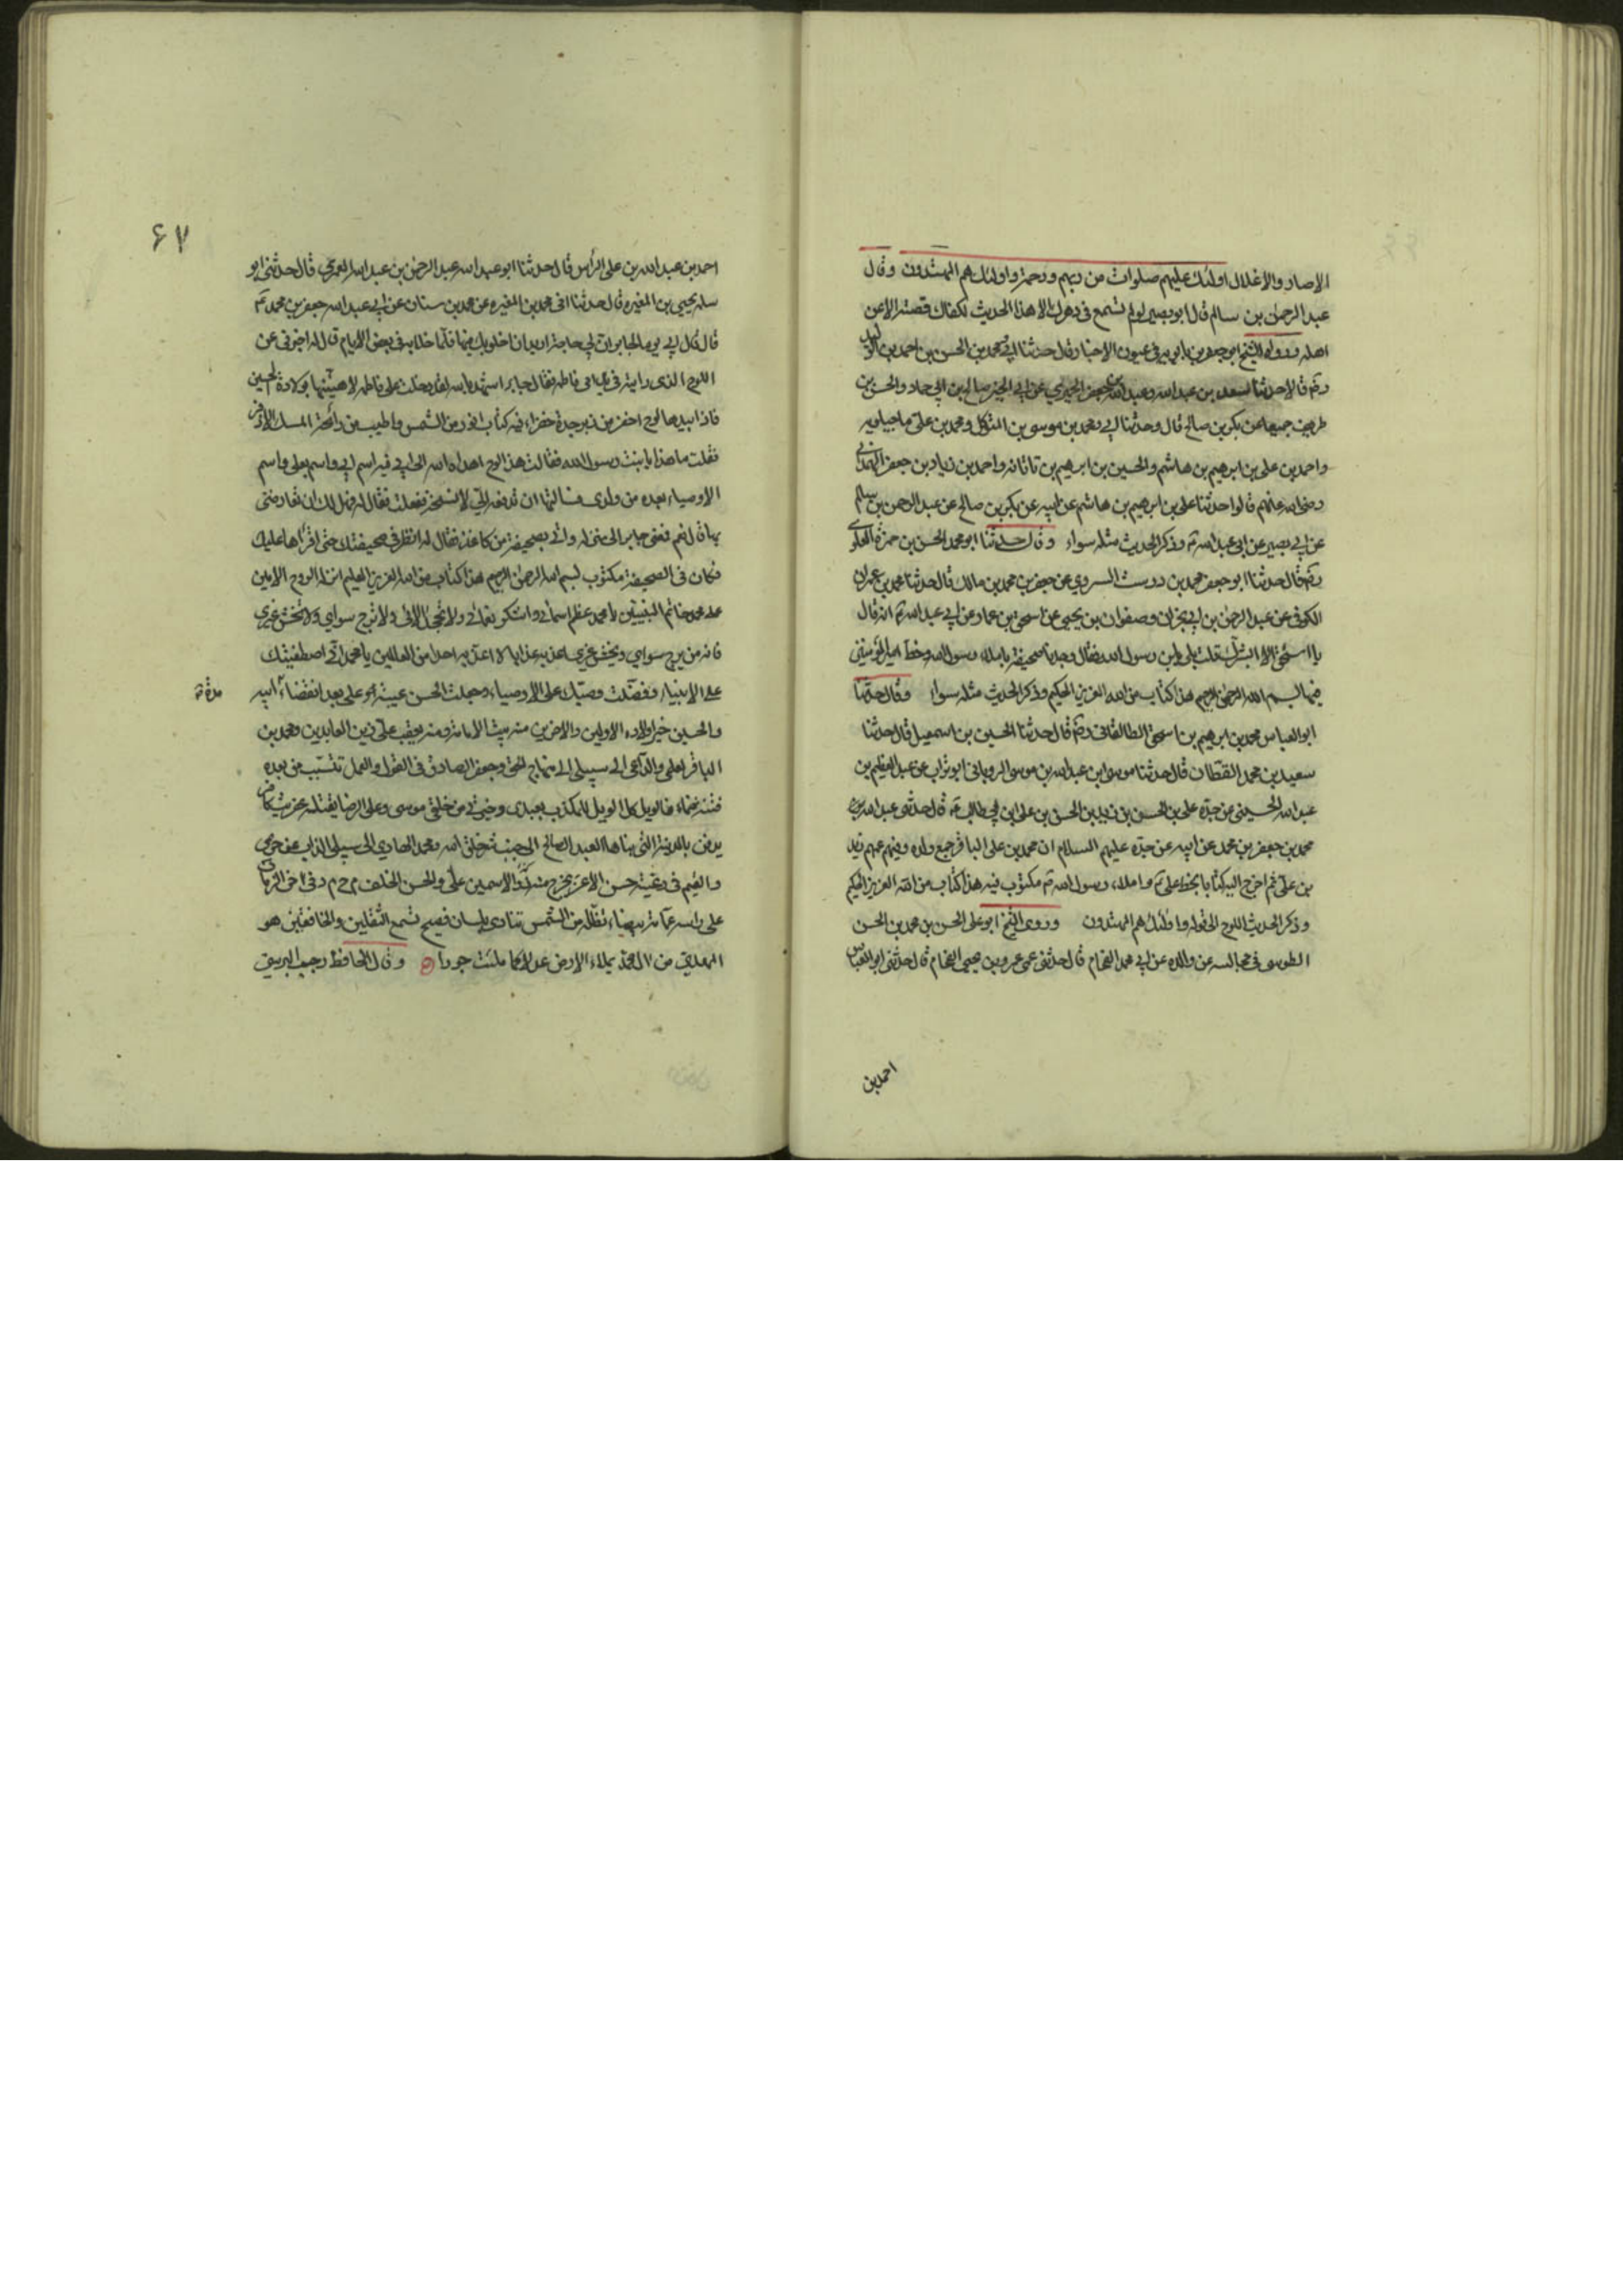 الاصار والاغلال اولئك عليهم صلوات من ربهم ورحمة واولئك هم المهتدون وقال
عبد الرحمن بن سالم قال ابو بصير لو لم تسمع فى دهرك الا هذا الحديث لكفاك فصنه الا عن
اهله ورواه الشيخ ابو جعفر بن بابويه فى عيون الاخبار قال حدثنا ابى ومحمد بن الحسن بن احمد بن الوليد
رضه قالا حدثنا سعد بن عبد الله وعبد الله بن جعفر الحميرى عن ابى الخير صالح بن ابى حماد والحسن بن
طريف جميعا عن بكر بن صالح قال وحدثنا ابى ومحمد بن موسى بن المتوكل ومحمد بن على ماجيلويه
واحمد بن على بن ابرهيم بن هاشم والحسين بن ابرهيم بن تاتانه واحمد بن زياد بن جعفر الهمدانى
رضى الله عنهم قالوا حدثنا على بن ابرهيم بن هاشم عن ابيه عن بكر بن صالح عن عبد الرحمن بن سالم
عن ابى بصير عن ابى عبد الله ع وذكر الحديث مثله سواء وقال حدثنا ابو محمد الحسن بن حمزة العلوى
رضه قال حدثنا ابو جعفر محمد بن درست السروى عن جعفر بن محمد بن مالك قال حدثنا محمد بن عمران
الكوفى عن عبد الرحمن بن ابى نجران وصفوان بن يحيى عن اسحق بن عمار عن ابى عبد الله ع انه قال
يا اسحق الا ابشرك قلت بلى يابن رسول الله فقال وجدنا صحيفة باملاء رسول الله وخط امير المؤمنين
فيها بسم الله الرحمن الرحيم هذا كتاب من الله العزيز الحكيم وذكر الحديث مثله سواء وقال حدثنا
ابو العباس محمد بن ابرهيم بن اسحق الطالقانى رضه قال حدثنا الحسين بن اسمعيل قال حدثنا
سعيد بن محمد القطان قال حدثنا موسى بن عبد الله بن موسى الرويانى ابو تراب عن عبد العظيم بن
عبد الله الحسينى عن جده على بن الحسن بن زيد بن الحسن بن على ابن ابى طالب ع قال حدثنى عبد الله بن
محمد بن جعفر بن محمد عن ابيه عن جده عليهم السلام ان محمد بن على الباقر جمع ولده وفيهم عمهم زيد
بن على ثم اخرج اليه كتابا بخط على ع واملاء رسول الله ص مكتوب فيه هذا كتاب من الله العزيز الحكيم
وذكر الحديث اللوح الى قوله واولئك هم المهتدون وروى الشيخ ابو على الحسن بن محمد بن الحسن
الطوسى فى مجالسه عن والده عن ابى محمد الفحام قال حدثنى عمى عمرو بن يحيى الفحام قال حدثنى ابو العباس
احمد بن
٦٧
احمد بن عبد الله بن على الرأس قال حدثنا ابو عبد الله عبد الرحمن بن عبد الله العمرى قال حدثنى ابو
سلمه يحيى بن المغيره قال حدثنا اخى محمد بن المغيره عن محمد بن سنان عن ابى عبد الله جعفر بن محمد ع
قال قال ابى يوما لجابر ان لى حاجة اريد ان اخلو بك فيها فلما خلا به فى بعض الايام قال له اخبرنى عن
اللوح الذى رايته فى يد امى فاطمه فقال جابر اشهد بالله لقد دخلت على فاطمه لاهنيها بولادة الحسين
فاذا بيدها لوح اخضر من زبرجدة خضراء فيه كتاب انور من الشمس واطيب من رائحة المسك الاذفر
فقلت ما هذا يا بنت رسول الله فقالت هذا لوح اهداه الله الى ابى فيه اسم ابى واسم بعلى واسم
الاوصياء بعده من ولدى فسالتها ان تدفعه الى لانسخه ففعلت فقال له فهل لك ان تعارضنى
بها قال نعم فمضى جابر الى منزله واتى بصحيفة من كاغذ فقال له انظر فى صحيفتك حتى اقرأها عليك
فكان فى الصحيفة مكتوب بسم الله الرحمن الرحيم هذا كتاب من الله العزيز العليم انزله الروح الامين
على محمد خاتم النبيين يا محمد عظم اسمائى واشكر نعمائى ولا تجحد الائى ولا ترج سواى ولا تخش غيرى
فانه من يرج سواى ويخش غيرى اعذبه عذابا لا اعذبه احدا من العالمين يا محمد انى اصطفيتك
على الانبياء وفضلت وصيك على الاوصياء وجعلت الحسن عيبة علمى بعد انقضاء ابيه
مدة
والحسين خير اولاد الاولين والاخرين منه يثبت الامامة ومنه يعقب على زين العابدين ومحمد بن
الباقر لعلمى والداعى الى سبيلى الى منهاج الحق وجعفر الصادق فى القول والعمل تنشب من بعده
فتنة صماء فالويل كل الويل للمكذب بعبدى وخيرتى من خلقى موسى وعلى الرضا يقتله عفريت كافر
يدفن بالمدينة التى بناها العبد الصالح الى جنب شر خلق الله ومحمد الهادى الى سبيلى الذاب عن حرمى
والقيم فى رعيته حسن الاغر يخرج منه ذو الاسمين على والحسن والخلف م ح م د فى اخر الزمان
على راسه عمامة بيضاء تظله من الشمس تنادى بلسان فصيح تسمع الثقلين والخافقين هو
المهدى من ال محمد يملاء الارض عدلا كما ملئت جورا وقال الحافظ رجب البرسى